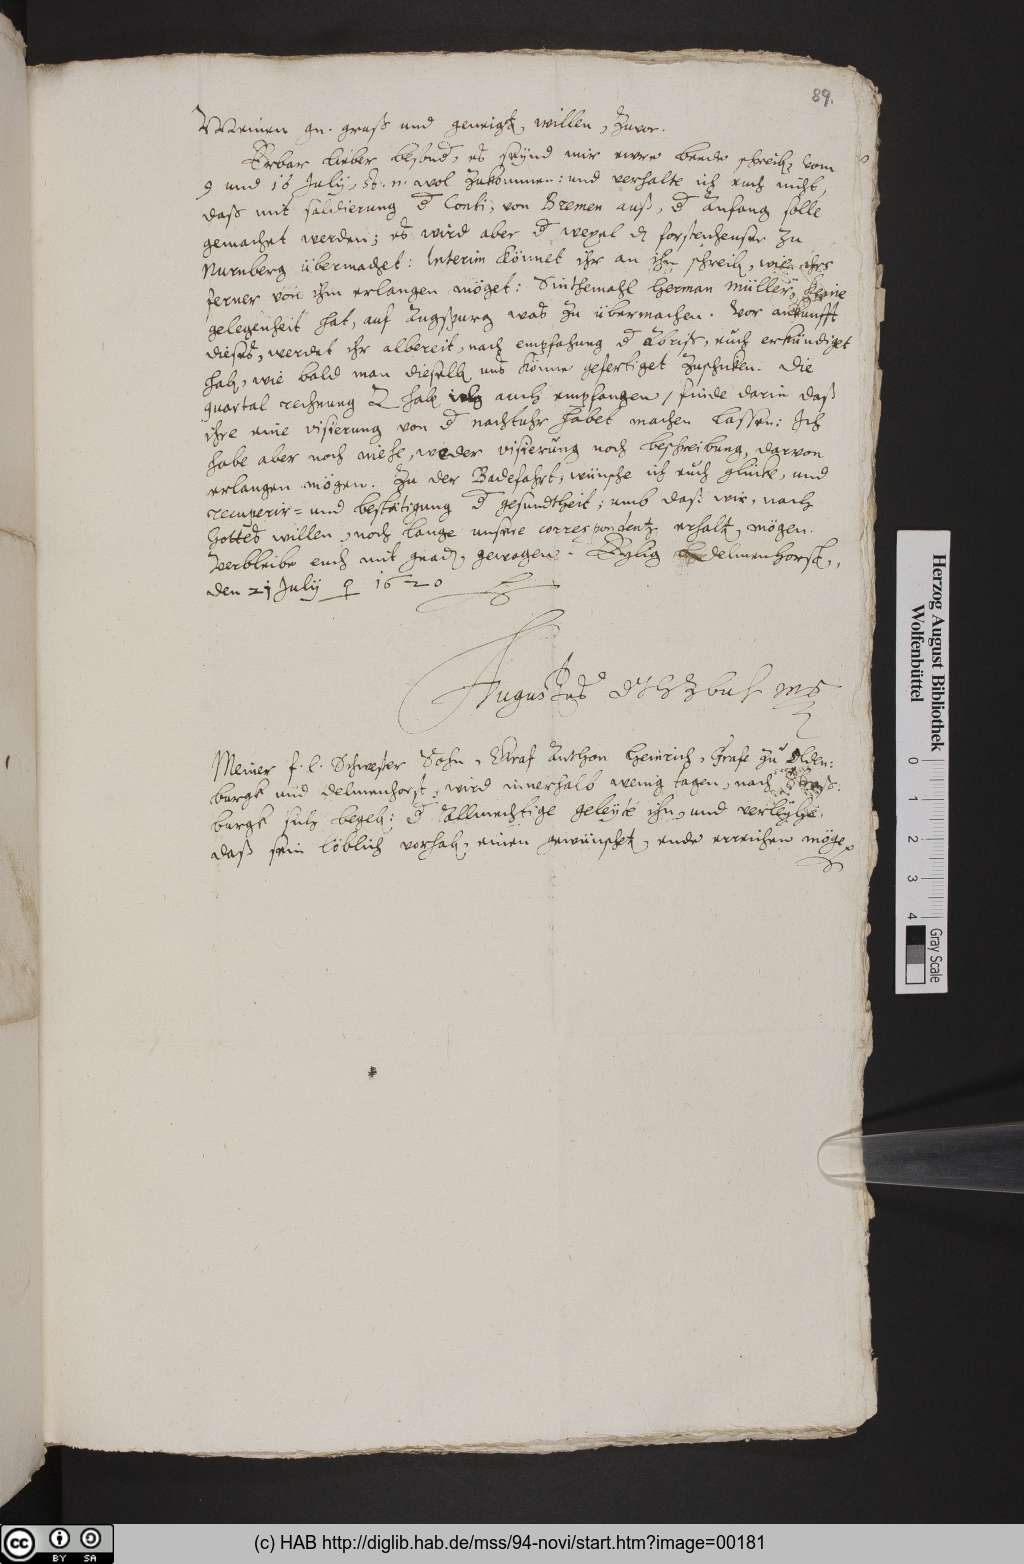 89.
Meinen gn. gruß und geneigt. willen, zuvor.
Erbar lieber besond., es seynd mir ewre beede schreib. vom
9 und 16 July, st. n. wol zukommen: und verhalte ich euch nicht,
daß mit soldierung d Conti, von Bremen auß, d anfang solle
gemachet werden; es wird aber d wexel zu
Nurnberg übermachet: Interim könnet ihr an ihn schreib, wie ihrs
ferner von ihm erlangen möget: Sinthemahl Herman Müller, keine
gelegenheit hat, auf Augspurg was zu übermachen. Vor ankunfft
dieses, werdet ihr albereit, nach empfahung d Abriß, euch erkundiget
hab, wie bald man dieselb uns könne gefertiget zuschicken. Die
quartal rechnung hab ich auch empfangen, finde darin daß
ihre eine visierung von d nachtuhr habet machen lassen: Ich
habe aber noch nicht, weder visierung noch beschreibung, darvon
erlangen mögen. Zu der Badefahrt, wünsche ich euch glücke, und
recuperir= und bestätigung d gesundtheit; umb daß wir, nach
Gottes willen, noch lange unsere correspondentz erhalt. mögen.
Verbleibe euch mit gnad. gewogen. Eylig Delmenhorst,
den 21 July 1620
Augustus
Meiner f. l. Schwester Sohn, Graf Anthon Heinrich, Grafe zu Olden:
burgk und Delmenhorst, wird innerhalb wenig tagen, nach Straß:
burgk sich begeb: d Allmechtige geleyte ihn, und verleyhe,
daß sein löblich vorhab, einen gewünscht. ende erreichen möge
Herzog August Bibliothek
Wolfenbüttel
0 1 2 3 4
Gray Scale
cc BY SA
(c) HAB http://diglib.hab.de/mss/94-novi/start.htm?image=00181